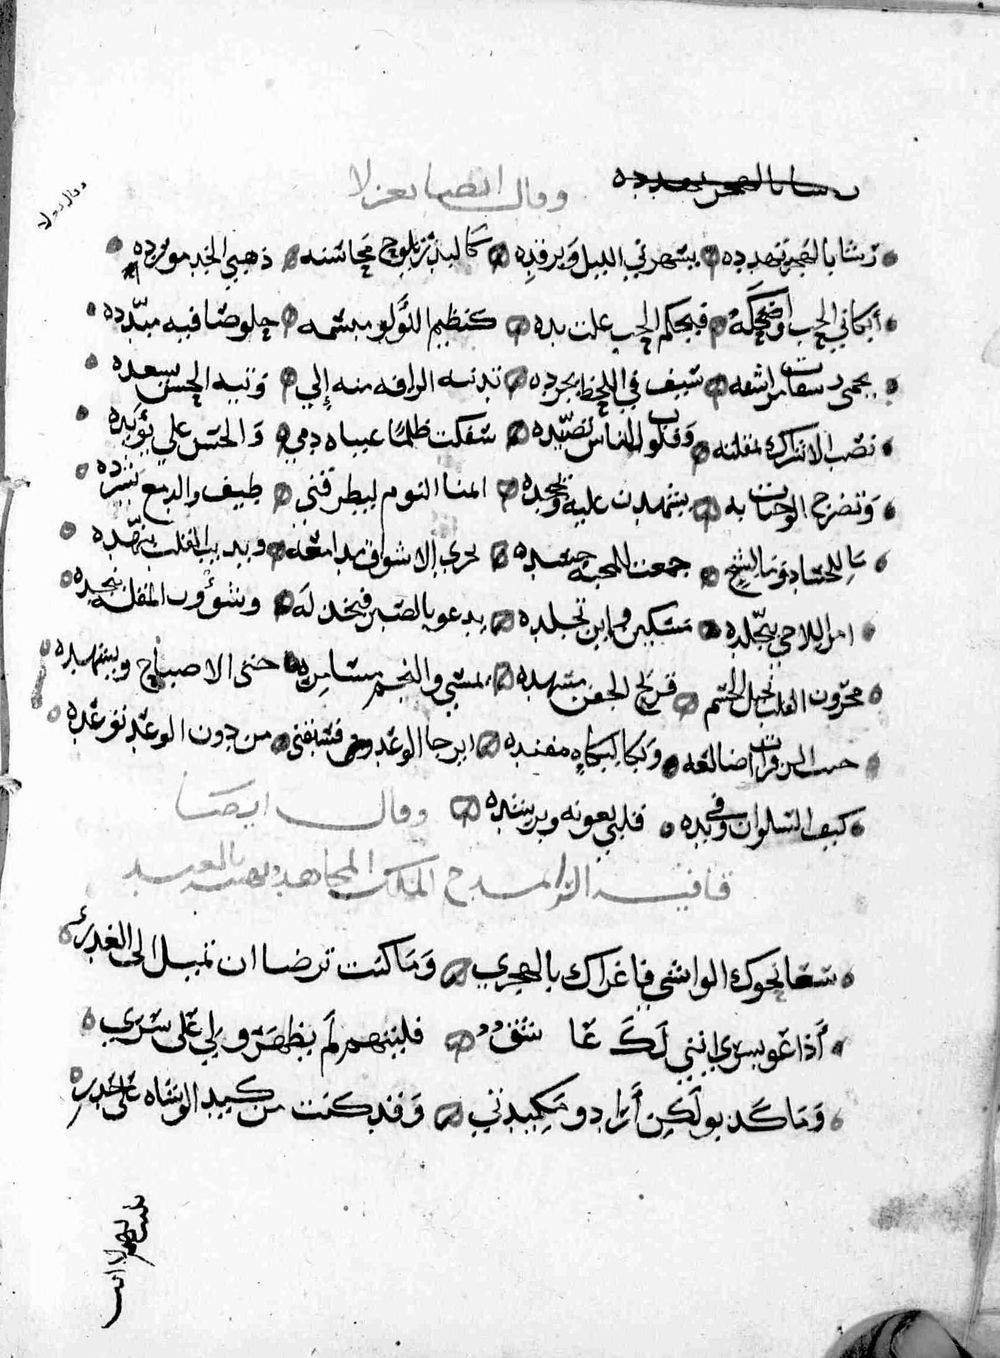 رشا بالهجر تهدده
وقال ايضا يغزلا
رَشا بالهَجرِ تهدده يسهرني الليل وَيرقده كالبدر يلوح محاسنه ذهبي الخد مورّده
أبكاني الحب أضحكه فيحكم الحب علت يده كنظيم اللؤلؤ مبسمه حلو صافيه مبدّده
يحمى رشفات مراشفه سيف في اللحظ يجرده تدنيه الرافه منه إلي وتيه الحسن يبعده
نصب الاشراك لمقلته وقلوب الناس تصيّده سفكت ظلمًا عيناه دمي وَالحسن علي يؤيّده
وَتضرج الوجنات به يشهدن عليه وتجحده المنا النوم ليطرقني طيف والدمع يشرده
مَا للحسّاد وَمَا لشج جمعت للمحبة حسده تجري الاشواق مدامعه ويذيب القلب تنهّده
امر اللاحي بتجلّده مسكين واين تجلده يدعو بالصبر فيخذله وشؤون المقلة تنجده
محزون القلب نحيل الجسم قريح الجفن مسهده يمسي والنجم مسامره حتى الاصباح ويشهده
اضالعه وَبكا لبكاه مفنده ايرجا الوعد من دون الوعد توعّده
كيف السلوان وفي يده قلبي يغويه ويرشده وقال ايضا
قافية الرا يمدح الملك المجاهد ويهنيه بالعيد
سَعَا نحوك الواشي فاغراك بالهجرِي وَمَا كنت ترضا ان تميل الى الغدرِي
أَذاعَو بسري انني لَكَ عَاشقٌ فليتهم لَم يظهرو لي عَلى سَري
وَمَا كَدبو لَكِن أَرَادو مَكِيدتي وَقد كنت من كيد الوشاه عَلى حذرِي